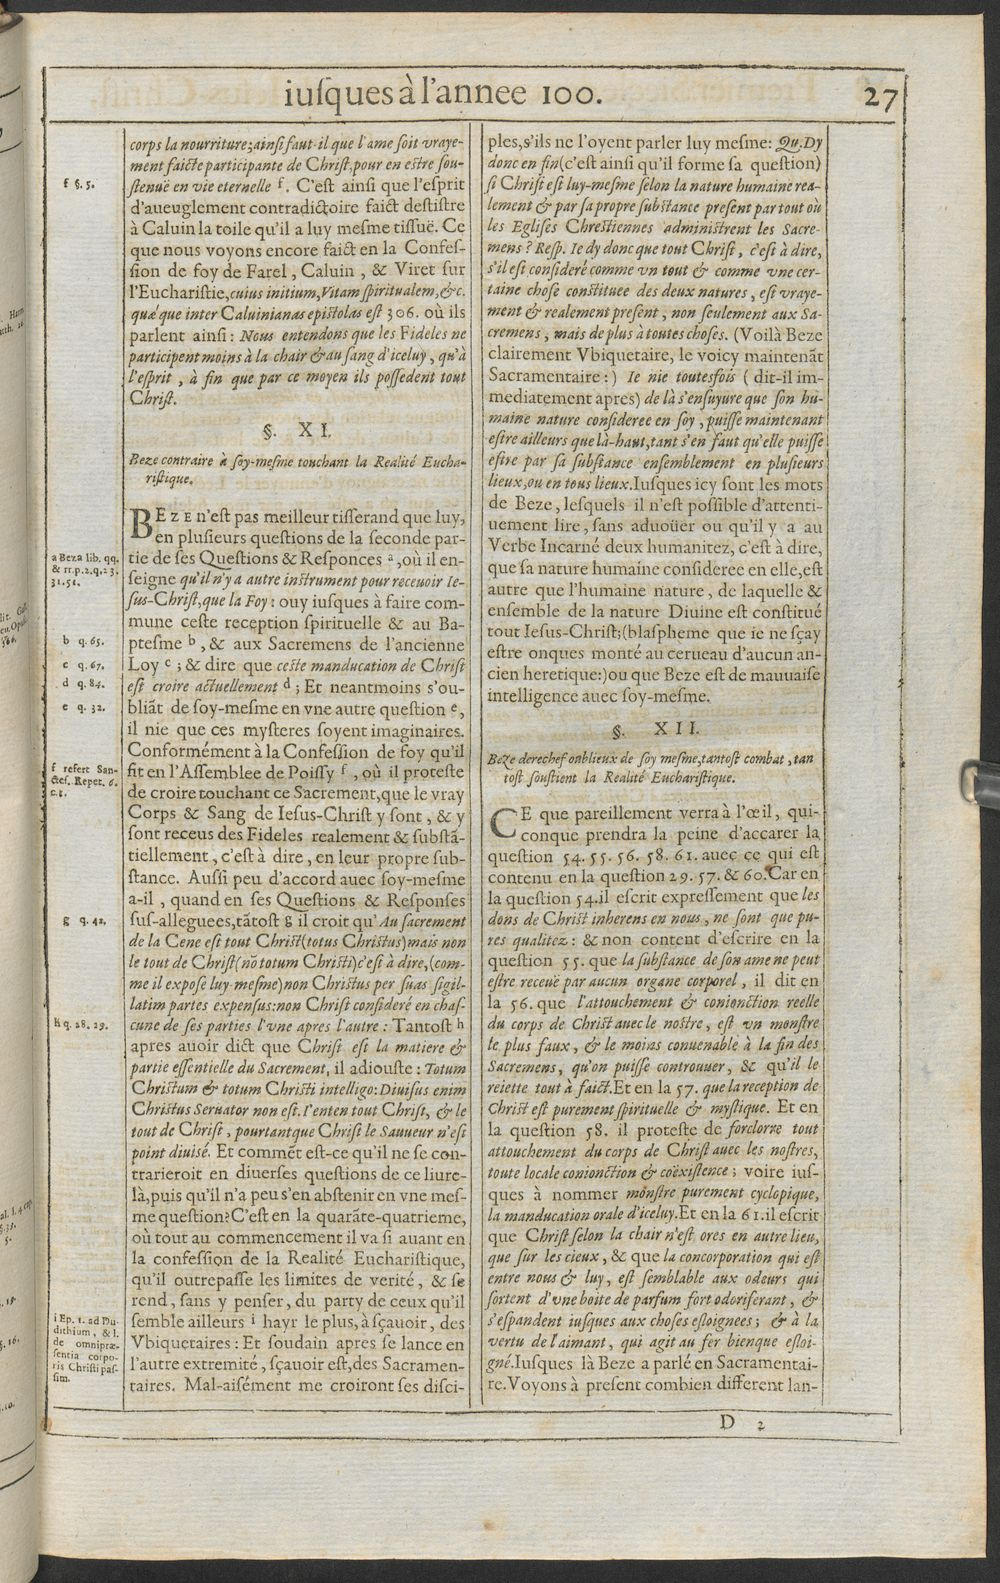 iuſques à l'annee 100.
27
corps la nourriture; ainſi faut-il que l'ame ſoit vraye-
ment faicte participante de Chriſt, pour en eſtre ſou-
ſtenuë en vie eternelle f. C'eſt ainſi que l'eſprit
d'aueuglement contradictoire faict deſtiſtre
à Caluin la toile qu'il a luy meſme tiſſuë. Ce
que nous voyons encore faict en la Confeſ-
ſion de foy de Farel, Caluin, & Viret ſur
l'Euchariſtie, cuius initium, Vitam ſpiritualem, &c.
quæque inter Caluinianas epiſtolas eſt 306. où ils
parlent ainſi: Nous entendons que les Fideles ne
participent moins à la chair & au ſang d'iceluy, qu'à
l'eſprit, à fin que par ce moyen ils poſſedent tout
Chriſt.
§. XI.
Beze contraire à ſoy-meſme touchant la Realité Eucha-
riſtique.
BEZE n'eſt pas meilleur tiſſerand que luy,
en pluſieurs queſtions de la ſeconde par-
tie de ſes Queſtions & Reſponces a, où il en-
ſeigne qu'il n'y a autre inſtrument pour receuoir Ie-
ſus-Chriſt, que la Foy: ouy iuſques à faire com-
mune ceſte reception ſpirituelle & au Ba-
pteſme b, & aux Sacremens de l'ancienne
Loy c; & dire que ceſte manducation de Chriſt
eſt croire actuellement d; Et neantmoins s'ou-
bliãt de ſoy-meſme en vne autre queſtion e,
il nie que ces myſteres ſoyent imaginaires.
Conformément à la Confeſſion de foy qu'il
fit en l'Aſſemblee de Poiſſy f, où il proteſte
de croire touchant ce Sacrement, que le vray
Corps & Sang de Ieſus-Chriſt y ſont, & y
ſont receus des Fideles realement & ſubſtã-
tiellement, c'eſt à dire, en leur propre ſub-
ſtance. Auſſi peu d'accord auec ſoy-meſme
a-il, quand en ſes Queſtions & Reſponſes
ſuſ-alleguees, tãtoſt g il croit qu'Au ſacrement
de la Cene eſt tout Chriſt (totus Chriſtus) mais non
le tout de Chriſt (nõ totum Chriſti) c'eſt à dire, (com-
me il expoſe luy-meſme) non Chriſtus per ſuas ſigil-
latim partes expenſus: non Chriſt conſideré en chaſ-
cune de ſes parties l'vne apres l'autre: Tantoſt h
apres auoir dict que Chriſt eſt la matiere &
partie eſſentielle du Sacrement, il adiouſte: Totum
Chriſtum & totum Chriſti intelligo: Diuiſus enim
Chriſtus Seruator non eſt. I'enten tout Chriſt, & le
tout de Chriſt, pourtant que Chriſt le Sauueur n'eſt
point diuiſé. Et commẽt eſt-ce qu'il ne ſe con-
trarieroit en diuerſes queſtions de ce liure-
là, puis qu'il n'a peu s'en abſtenir en vne meſ-
me queſtion? C'eſt en la quarãte-quatrieme,
où tout au commencement il va ſi auant en
la confeſſion de la Realité Euchariſtique,
qu'il outrepaſſe les limites de verité, & ſe
rend, ſans y penſer, du party de ceux qu'il
ſemble ailleurs i hayr le plus, à ſçauoir, des
Vbiquetaires: Et ſoudain apres ſe lance en
l'autre extremité, ſçauoir eſt, des Sacramen-
taires. Mal-aiſément me croiront ſes diſci-
f §. 5.
a Beza lib. qq.
& rr. p. 2. q. 23.
31. 51.
b q. 65.
c q. 67.
d q. 84.
e q. 32.
f refert San-
cteſ. Repet. 6.
c. 1.
g q. 42.
h q. 28. 29.
i Ep. 1. ad Du-
dithium, & l.
de omnipræ-
ſentia corpo-
ris Chriſti paſ-
ſim.
ples, s'ils ne l'oyent parler luy meſme: Qu. Dy
donc en fin (c'eſt ainſi qu'il forme ſa queſtion)
ſi Chriſt eſt luy-meſme ſelon la nature humaine rea-
lement & par ſa propre ſubſtance preſent par tout où
les Egliſes Chreſtiennes adminiſtrent les Sacre-
mens? Reſp. Ie dy donc que tout Chriſt, c'eſt à dire,
s'il eſt conſideré comme vn tout & comme vne cer-
taine choſe conſtituee des deux natures, eſt vraye-
ment & realement preſent, non ſeulement aux Sa-
cremens, mais de plus à toutes choſes. (Voilà Beze
clairement Vbiquetaire, le voicy maintenãt
Sacramentaire:) Ie nie toutesfois (dit-il im-
mediatement apres) de là s'enſuyure que ſon hu-
maine nature conſideree en ſoy, puiſſe maintenant
eſtre ailleurs que là-haut, tant s'en faut qu'elle puiſſe
eſtre par ſa ſubſtance enſemblement en pluſieurs
lieux, ou en tous lieux. Iuſques icy ſont les mots
de Beze, leſquels il n'eſt poſſible d'attenti-
uement lire, ſans aduoüer ou qu'il y a au
Verbe Incarné deux humanitez, c'eſt à dire,
que ſa nature humaine conſideree en elle, eſt
autre que l'humaine nature, de laquelle &
enſemble de la nature Diuine eſt conſtitué
tout Ieſus-Chriſt; (blaſpheme que ie ne ſçay
eſtre onques monté au cerueau d'aucun an-
cien heretique:) ou que Beze eſt de mauuaiſe
intelligence auec ſoy-meſme.
§. XII.
Beze derechef oublieux de ſoy meſme, tantoſt combat, tan
toſt ſouſtient la Realité Euchariſtique.
CE que pareillement verra à l'œil, qui-
conque prendra la peine d'accarer la
queſtion 54. 55. 56. 58. 61. auec ce qui eſt
contenu en la queſtion 29. 57. & 60. Car en
la queſtion 54. il eſcrit expreſſement que les
dons de Chriſt inherens en nous, ne ſont que pu-
res qualitez: & non content d'eſcrire en la
queſtion 55. que la ſubſtance de ſon ame ne peut
eſtre receuë par aucun organe corporel, il dit en
la 56. que l'attouchement & conionction reelle
du corps de Chriſt auec le noſtre, eſt vn monſtre
le plus faux, & le moins conuenable à la fin des
Sacremens, qu'on puiſſe controuuer, & qu'il le
reiette tout à faict. Et en la 57. que la reception de
Chriſt eſt purement ſpirituelle & myſtique. Et en
la question 58. il proteſte de forclorre tout
attouchement du corps de Chriſt auec les noſtres,
toute locale conionction & coëxiſtence; voire iuſ-
ques à nommer monſtre purement cyclopique,
la manducation orale d'iceluy. Et en la 61. il eſcrit
que Chriſt ſelon la chair n'eſt ores en autre lieu,
que ſur les cieux, & que la concorporation qui eſt
entre nous & luy, eſt ſemblable aux odeurs qui
ſortent d'vne boite de parfum fort odoriferant, &
s'eſpandent iuſques aux choſes eſloignees; & à la
vertu de l'aimant, qui agit au fer bien que eſloi-
gné. Iuſques là Beze a parlé en Sacramentai-
re. Voyons à preſent combien different lan-
D 2